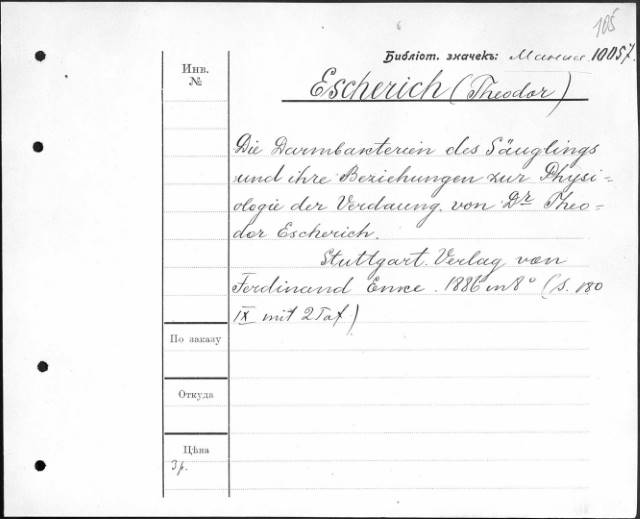 105
Библіот. значекъ: 10057.
Инв.
№
Escherich (Theodor)
Die Darmbakterien des Säuglings
und ihre Beziehungen zur Physi=
ologie der Verdauung. von Dr Theo=
dor Escherich.
Stuttgart. Verlag von
Ferdinand Enke. 1886 in 8° (S. 180
IX mit 2 Taf)
По заказу
Откуда
Цѣна
3 р.